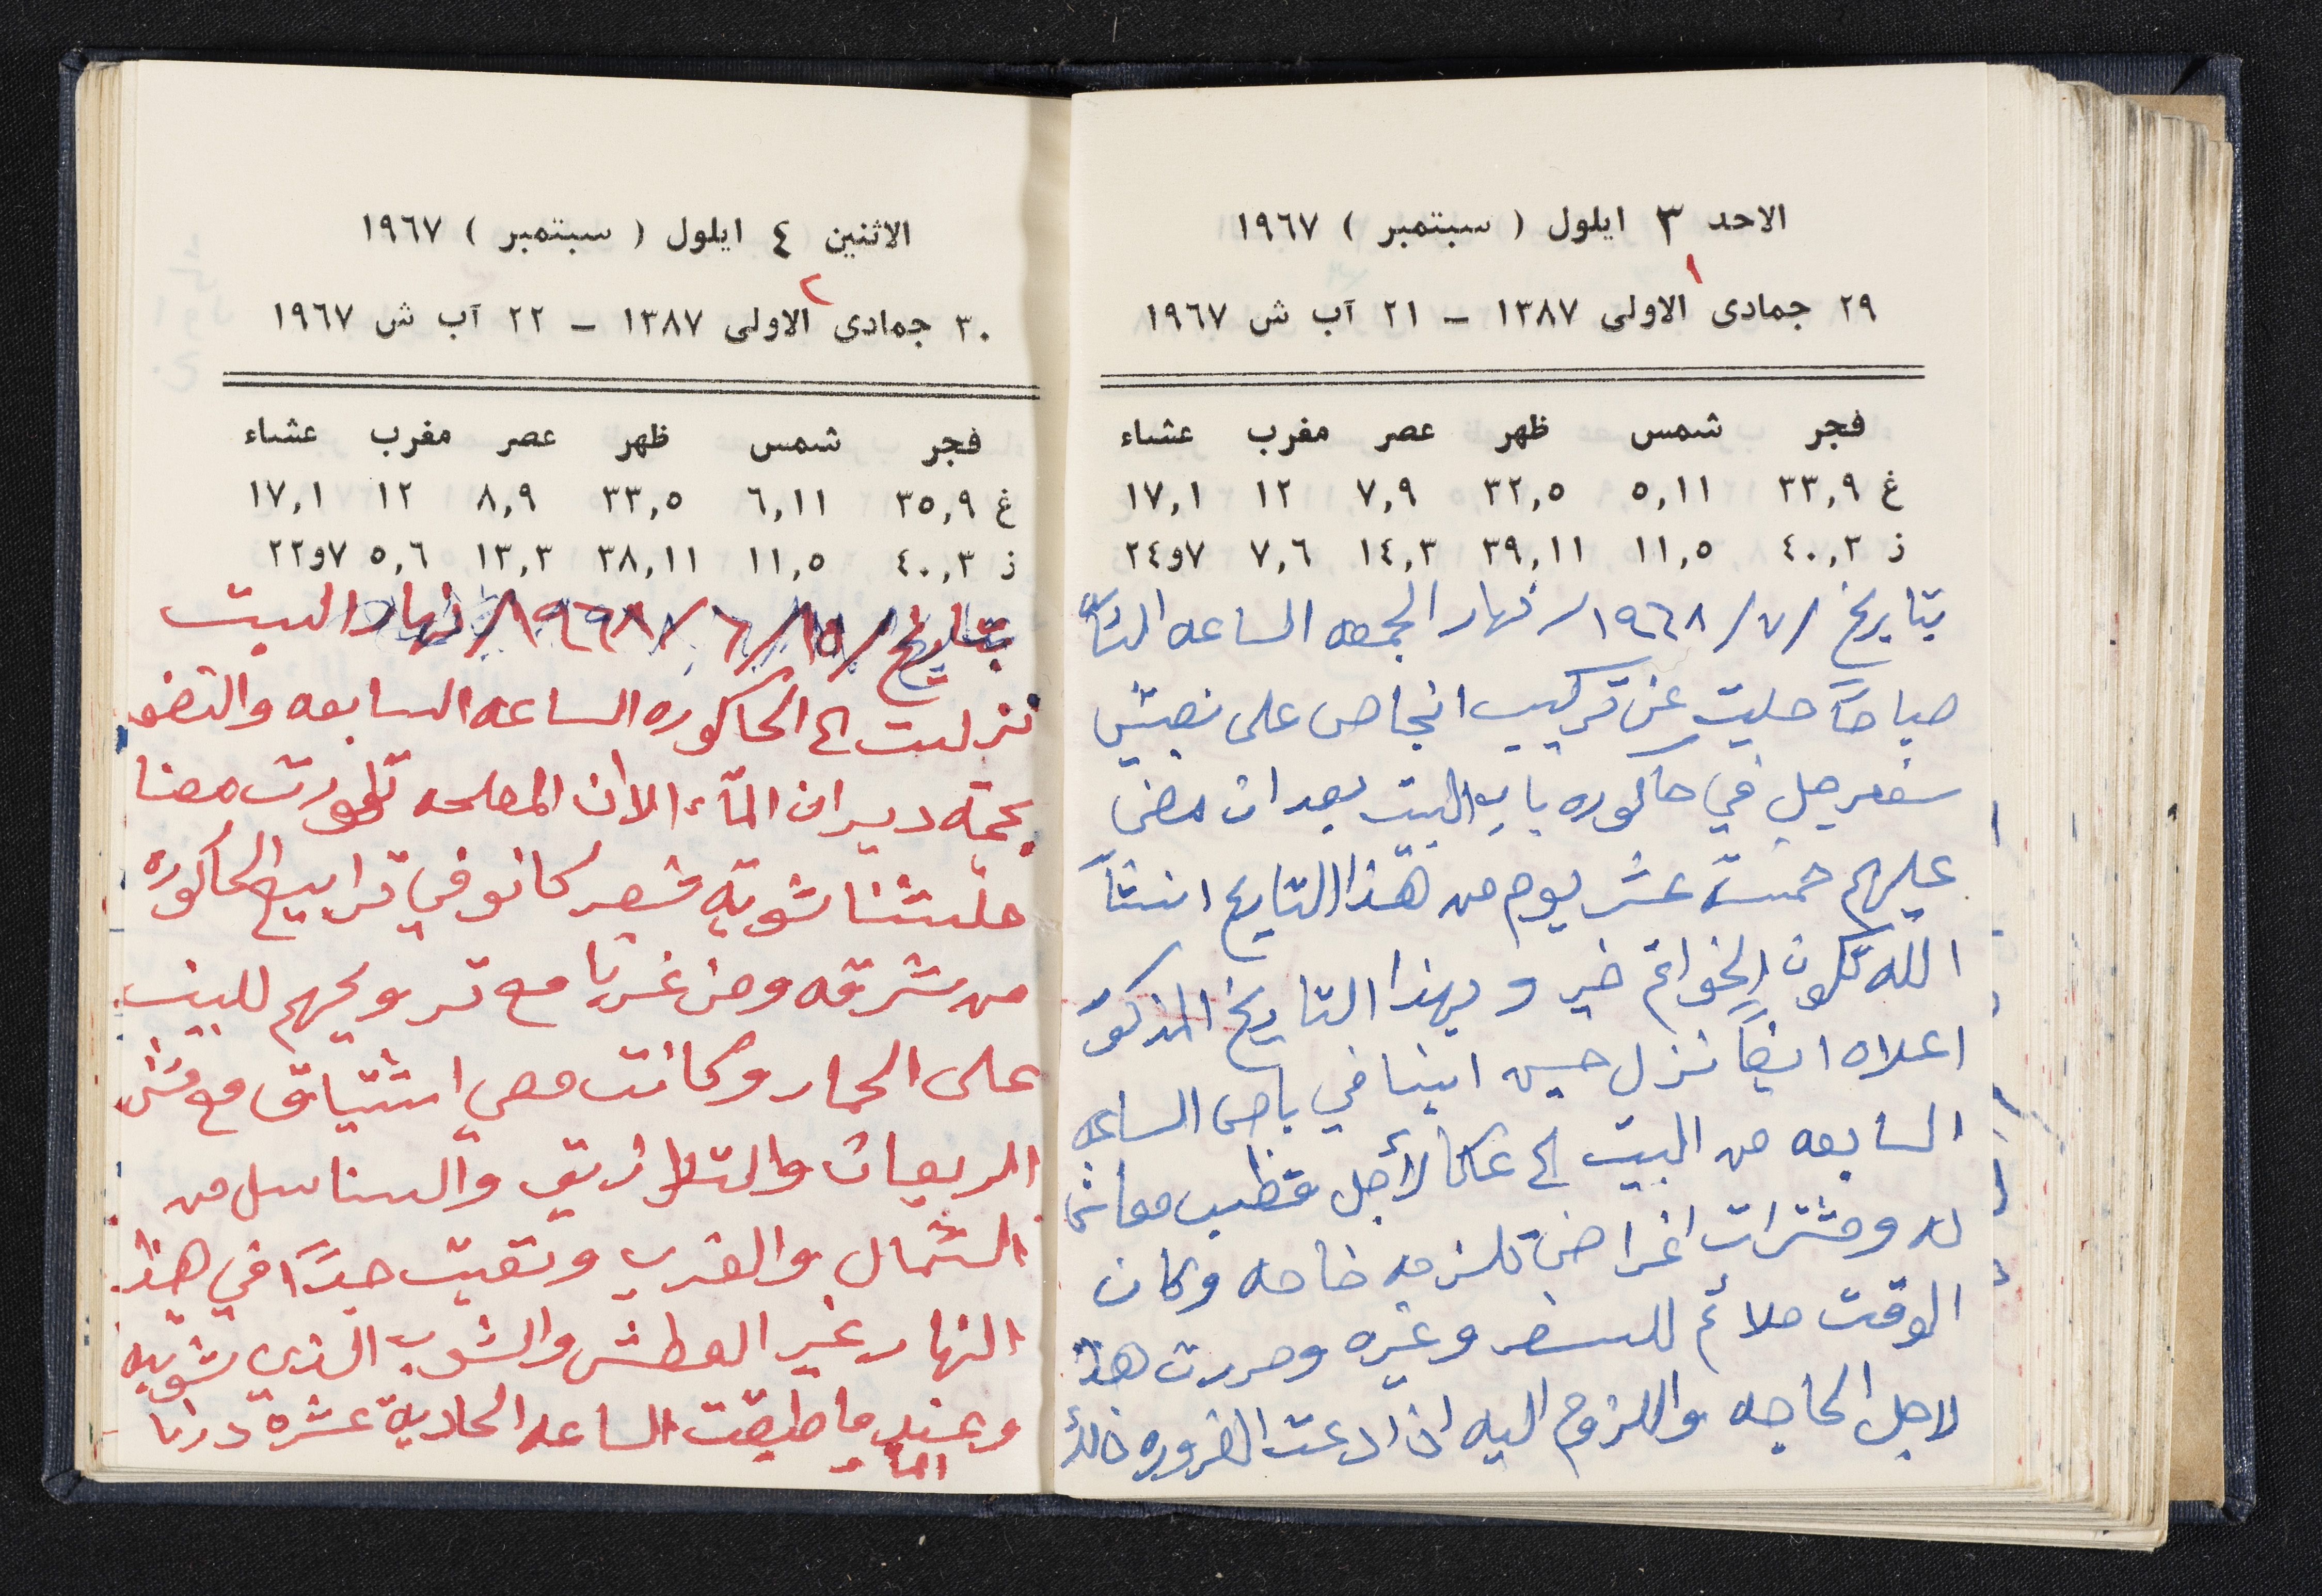 الاحد ٣ ايلول ( سبتمبر ) ١٩٦٧
١
٢٩ جمادى الاولى ١٣٨٧ - ٢١ آب ش ١٩٦٧
فجر شمس ظهر عصر مغرب عشاء
غ ٣٣,٩ ٥,١١ ٣٢,٥ ٧,٩ ١٢ ١٧,١
ز ٤٠,٣ ١١,٥ ٣٩,١١ ١٤,٣ ٧,٦ ٧و٢٤
بتاريخ /٧/ ١٩٦٨/ نهار الجمعه الساعه
صباحاً حليت عن تركيب انجاص على نصبتين
سفرجل في حاكوره باب البيت بعد ان مضى
عليهم خمسة عشر يوم من هذا التايخ انشأ
الله تكون الخواتم خير و بهذا التاريخ المذكور
اعلاه ايضاً نزل حسين ابننا في باص الساعه
السابعه من البيت الى عكا لأجل معاش
له ومشترات اغراض تلزمه خاصه وكان
الوقت ملائم للسفر وغيره وحررت هذا
لاجل الحاجه واللزوم اليه اذا دعت الضروره
الاثنين ٤ ايلول ( سبتمبر ) ١٩٦٧
٢
٣٠ جمادى الاولى ١٣٨٧ - ٢٢ آب ش ١٩٦٧
فجر شمس ظهر عصر مغرب عشاء
غ ٣٥,٩ ٦,١١ ٣٣,٥ ٨,٩ ١٢ ١٧,١
ز ٤٠,٣ ١١,٥ ٣٨,١١ ١٣,٣ ٥,٦ ٧و٢٢
بتاريخ /١٥/ ٦/ ١٩٦٨/ نهار السبت
نزلت الى الحاكوره الساعه السابعه والنصف
بحجة ديران المآء الا ان المصلحه تطورت معنا
شوية كانو في ترابيع الحاكوره
من شرقه ومن غربا مع ترويحهم للبيت
على الحمار وكانت معي اشتياق مع
الربعان والتطاريق والسناسل من
الشمال والغرب وتعبت جداً في هذا
النهار غير العطش والشوب الذي شوبه
وعندما طبقت الساعه الحادية عشرة درنا
الما